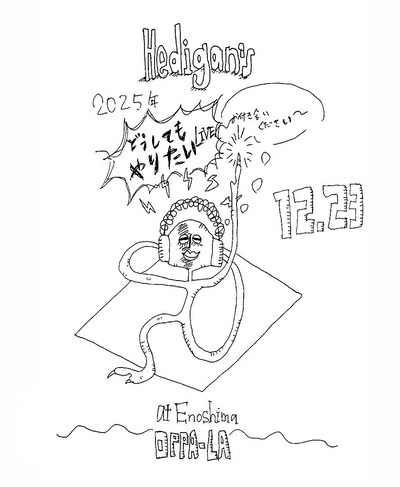 Hedigan's
2025年
どうしても
やりたいLIVE
お付き合い
ください〜
12.23
at Enoshima
OPPA-LA